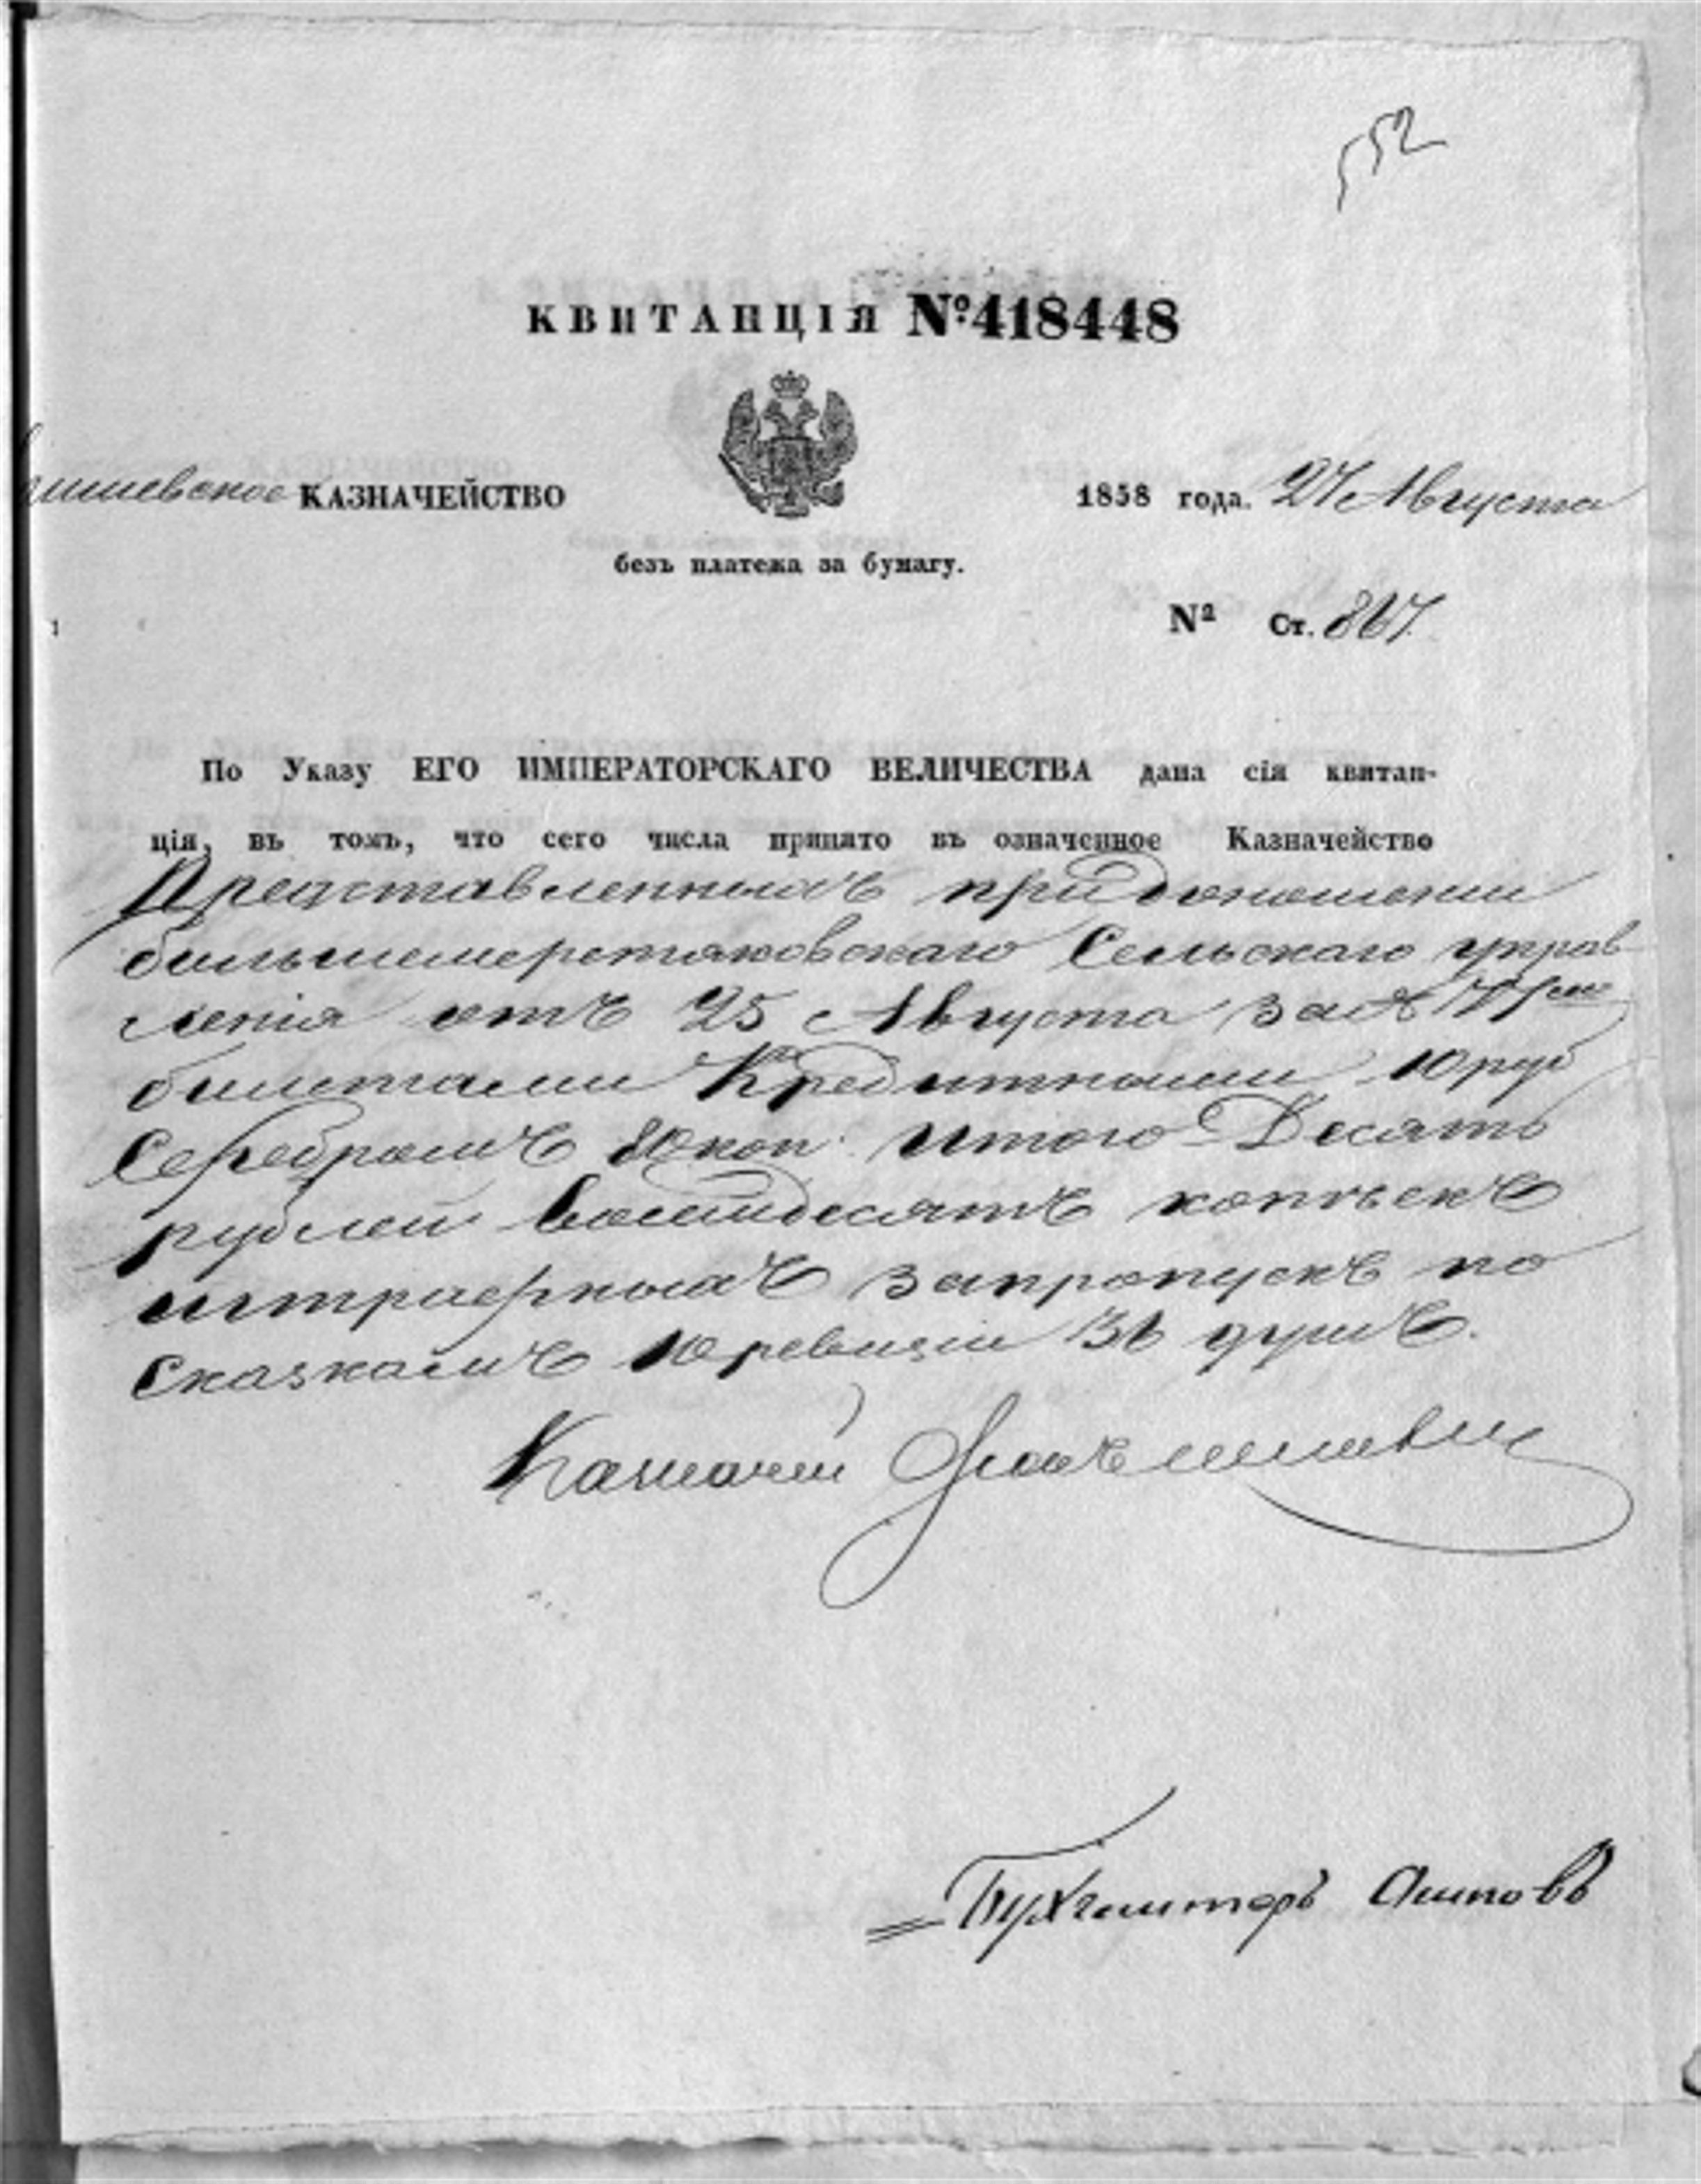 552
КВИТАНЦІЯ №418448
ишевское КАЗНАЧЕЙСТВО
1858 года. 27 Августа
безъ платежа за бумагу.
№ Ст. 867.
По Указу ЕГО ИМПЕРАТОРСКАГО ВЕЛИЧЕСТВА дана сія квитан-
ція, въ томъ, что сего числа принято въ означенное Казначейство
Представленныхъ при доношеніи
Сельскаго управ
ленія отъ 25 Августа за №
билетами Кредитными 10 руб
Серебромъ 80 коп. итого Десять
рублей Восемдесятъ копѣекъ
штрафныхъ за пропускъ по
Сказкамъ 10 ревизіи 36 душъ.
Казначей
Бухгалтеръ